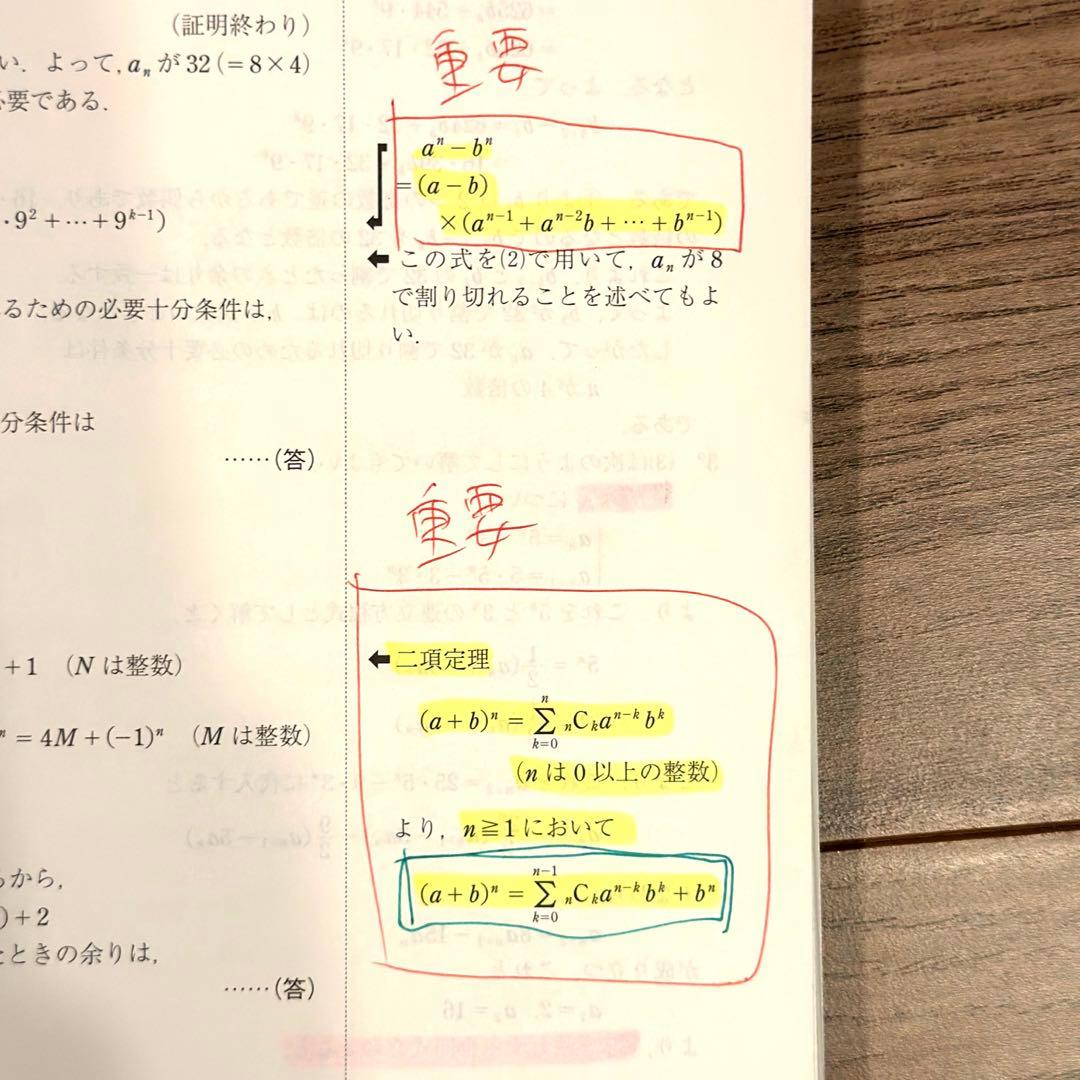 (証明終わり)
い.よって,aₙが32(=8×4)
必要である.
・9²+…+9ᵏ⁻¹)
るための必要十分条件は,
分条件は
……(答)
+1 (Nは整数)
ⁿ = 4M+(-1)ⁿ (Mは整数)
るから,
)+2
たときの余りは,
……(答)
重要
aⁿ-bⁿ
=(a-b)
×(aⁿ⁻¹+aⁿ⁻²b+…+bⁿ⁻¹)
この式を(2)で用いて,aₙが8
で割り切れることを述べてもよ
い.
重要
二項定理
(a+b)ⁿ = Σ_{k=0}^{n} ₙCₖaⁿ⁻ᵏbᵏ
(nは0以上の整数)
より,n≧1において
(a+b)ⁿ = Σ_{k=0}^{n-1} ₙCₖaⁿ⁻ᵏbᵏ+bⁿ